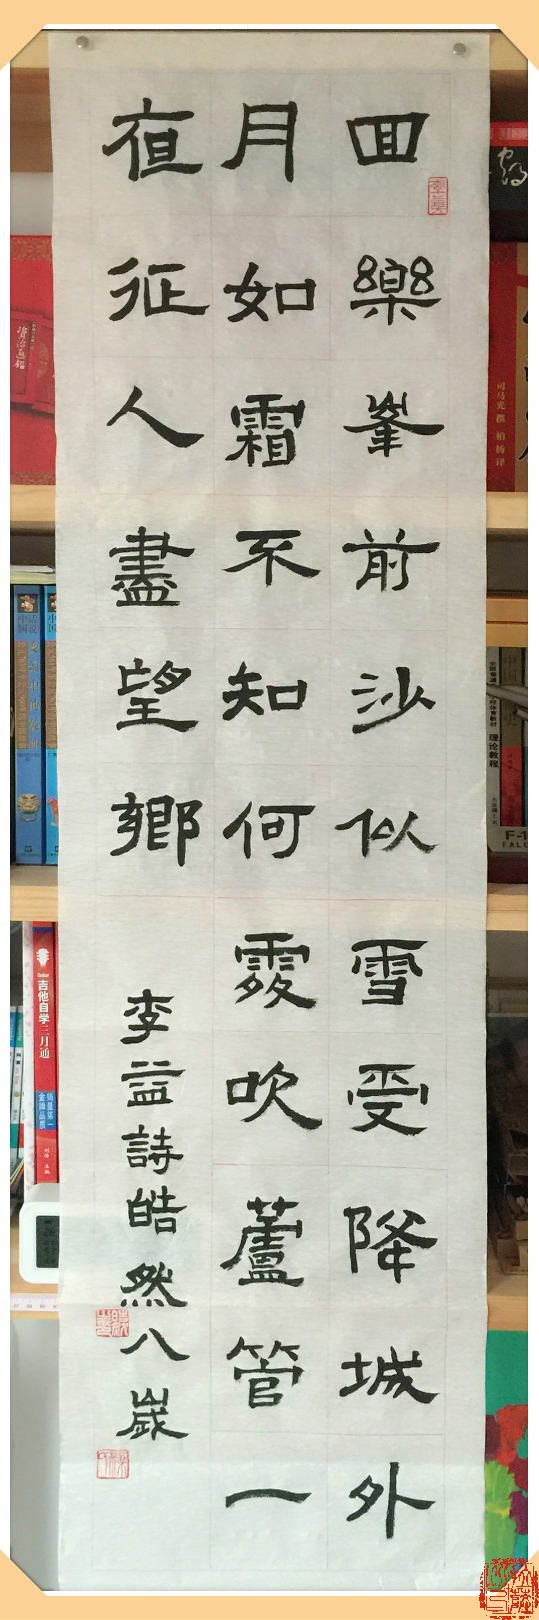 回樂峯前沙似雪受降城外
月如霜不知何處吹蘆管一
夜征人盡望鄉
李益詩皓然八歲
资治通鑑
司马光 撰 柏杨 译
理论教程
吉他自学三月通
销量第一